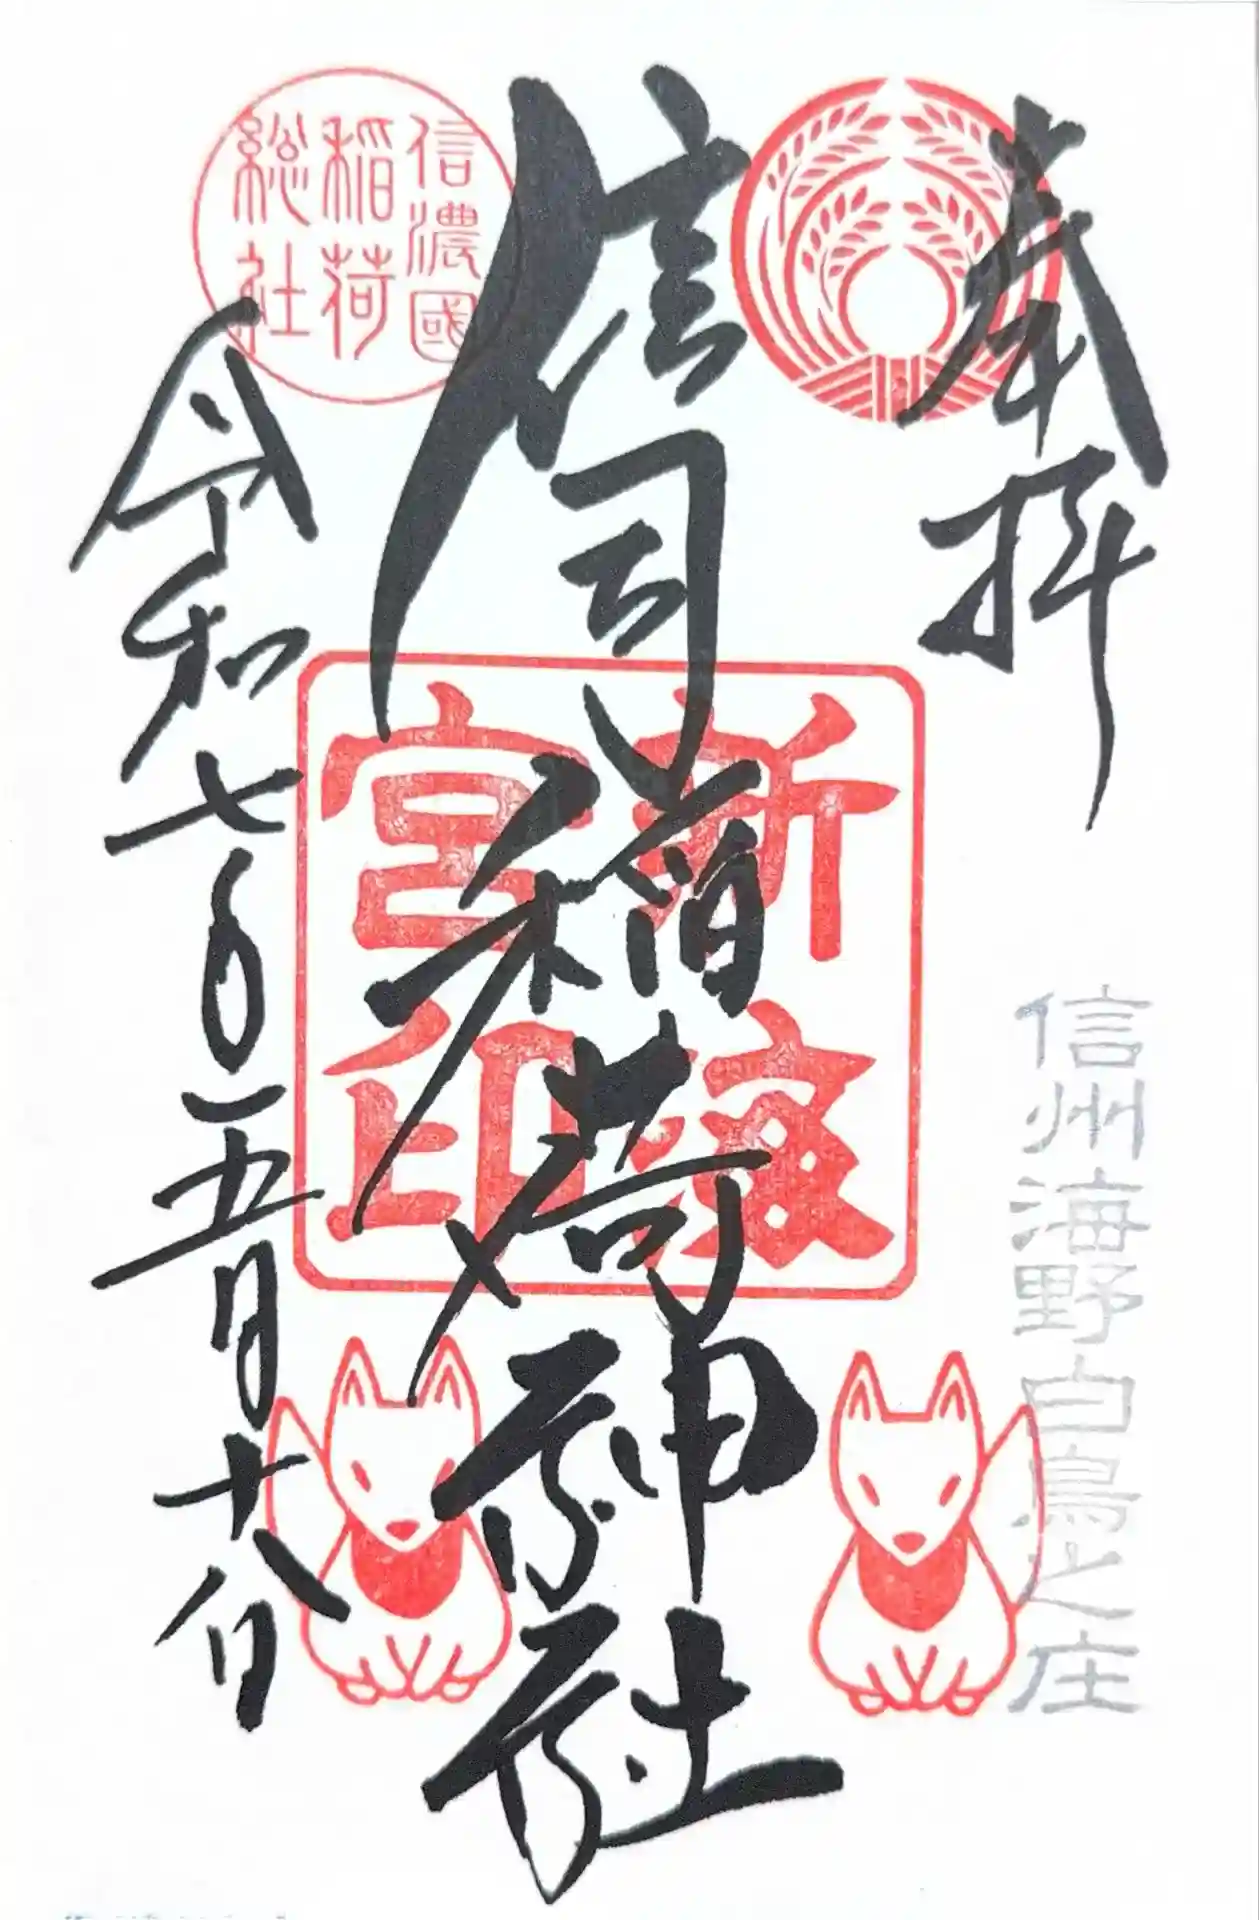 奉拝
信州海野白鳥之庄
信司稲荷神社
新
宮印
信濃國
稲荷
総社
令和七年五月十八日